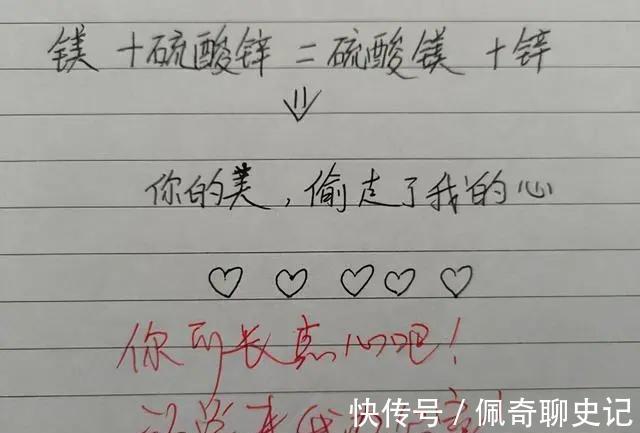 镁+硫酸锌=硫酸镁+锌
你的美,偷走了我的心
你可长点心吧!
快传号/佩奇聊史记